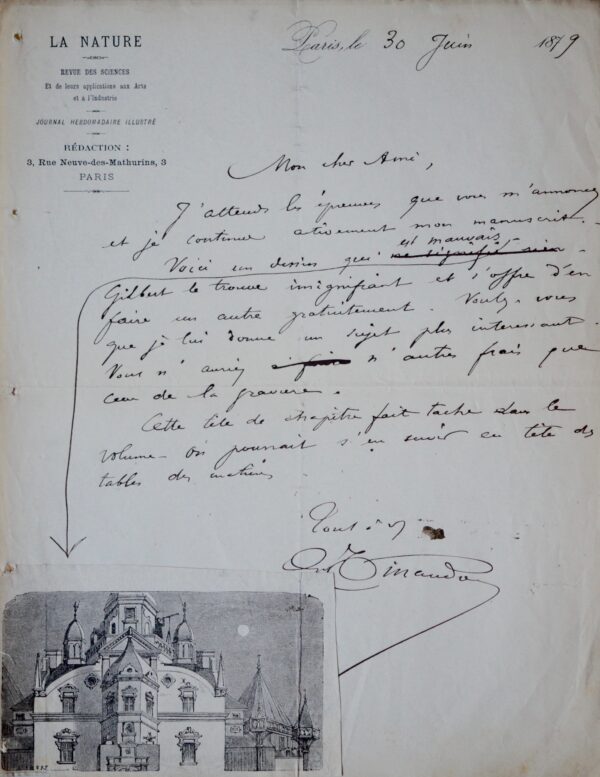 LA NATURE
REVUE DES SCIENCES
Et de leurs applications aux Arts
et à l'Industrie
JOURNAL HEBDOMADAIRE ILLUSTRÉ
RÉDACTION :
3, Rue Neuve-des-Mathurins, 3
PARIS
Paris, le 30 Juin 1879
Mon cher Ami,
J'attends les épreuves que vous m'annoncez
et je continue activement mon manuscrit.
est mauvais
Voici un dessin qui ne signifie rien
Gilbert le trouve insignifiant et s'offre d'en
faire un autre gratuitement. Voulez-vous
que je lui donne un sujet plus interessant.
Vous n'auriez à faire n'autres frais que
ceux de la gravure.
Cette tête de chapitre fait tache dans le
volume - on pourrait s'en servir en tête des
tables des matières
Tout à v
Tissandier